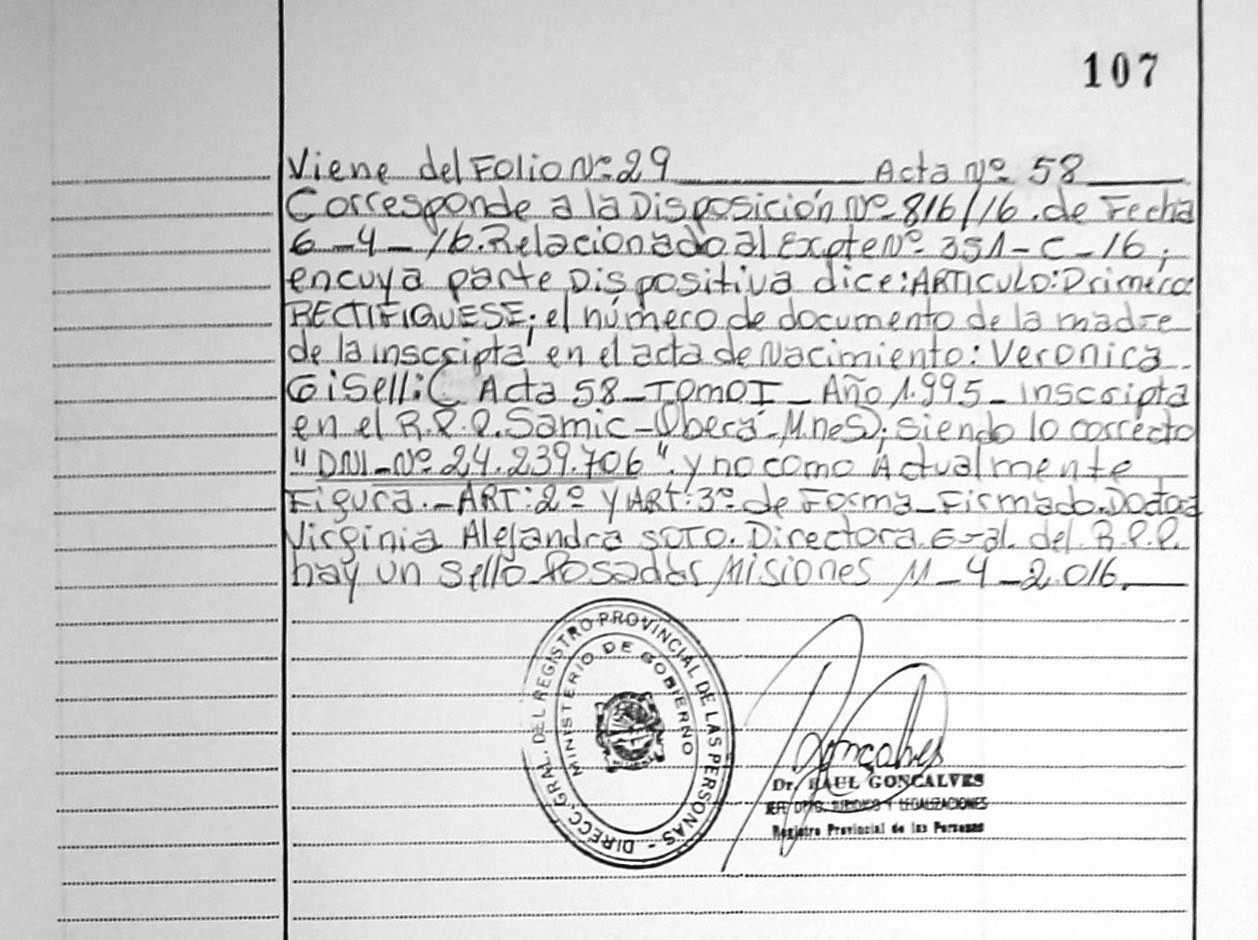 107
Viene del Folio Nº 29 Acta Nº 58
Corresponde a la Disposición Nº 816/16. de Fecha
6-4-16. Relacionado al Expte Nº 351-C-16;
en cuya parte Dispositiva dice: ARTICULO: Primero:
RECTIFIQUESE; el número de documento de la madre
de la inscripta en el acta de Nacimiento: Veronica
Giselli: (Acta 58 - Tomo I - Año 1.995 - inscripta
en el R.P.P. Samic - Oberá - M.nes); siendo lo correcto
"DNI-Nº 24.239.706". y no como Actualmente
Figura.- ART: 2º y ART: 3º de Forma - Firmado. Doctora
Virginia Alejandra SOTO. Directora Gral. del R.P.P.
hay un sello Posadas Misiones 11-4-2.016.
DIRECC. GRAL. DEL REGISTRO PROVINCIAL DE LAS PERSONAS -
MINISTERIO DE GOBIERNO
Gonçalves
Dr. RAUL GONCALVES
JEFE DPTO. JURIDICO Y LEGALIZACIONES
Registro Provincial de las Personas